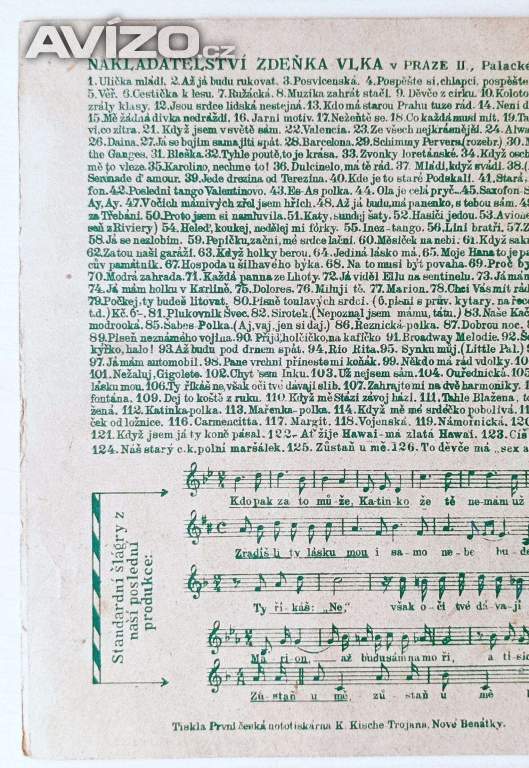 AVÍZO.cz
NAKLADATELSTVÍ ZDEŇKA VLKA v PRAZE II., Palacké
1. Ulička mládí. 2. Až já budu rukovat. 3. Posvícenská. 4. Pospěšte si, chlapci, pospěšte
5. Věř. 6. Cestička k lesu. 7. Ružácká. 8. Muzika zahrát stačí. 9. Děvče z cirku. 10. Koloto
zrály klasy. 12. Jsou srdce lidská nestejná. 13. Kdo má starou Prahu tuze rád. 14. Není d
15. Mě žádná dívka nedráždí. 16. Jarní motiv. 17. Nežeňte se. 18. Co každá musí mít. 19. Ta
vi, co zítra. 21. Když jsem v světě sám. 22. Valencia. 23. Ze všech nejkrásnější. 24. Alw
26. Daina. 27. Já se bojím sama jíti spát. 28. Barcelona. 29. Schimmy Pervers (rozebr.) 30. M
the Ganges. 31. Bleška. 32. Tyhle pouťě, to je krása. 33. Zvonky loretánské. 34. Když osch
mě to vleze. 35. Karolino, nechme to! 36. Dulcinelo, má tě rád. 37. Mládí, když svádí. 38. (
Serenade d'amour. 39. Jede drezína od Terezína. 40. Kde je to staré Podskalí. 41. Stará
fon. 42. Poslední tango Valentinovo. 43. Es-As polka. 44. Ola je celá pryč... 45. Saxofon-
Ay, Ay. 47. Vočích mámivých zřel jsem hřích. 48. Až já budu, má panenko, s tebou sám. 49
za Třebání. 50. Proto jsem si namluvila. 51. Katy, sundej šaty. 52. Hasiči jedou. 53. Avione
seň z Riviery) 54. Heleď, koukej, nedělej mi fórky. 55. Inez-tango. 56. Líní bratři. 57. Z
58. Já se nezlobím. 59. Pepíčku, začni, mé srdce lační. 60. Měsíček na nebi. 61. Když sak
62. Zatou naší garáží. 63. Když holky berou. 64. Jediná lásko má. 65. Moje Hana to je pa
cův památník. 67. Hospoda u šilhavého býka. 68. Na to musí být povaha. 69. Proč by
70. Modrá zahrada. 71. Každá panna ze Lhoty. 72. Já viděl Ellu na sentinelu. 73. Já mám
74. Já mám holku v Karlíně. 75. Dolores. 76. Miluji tě. 77. Marion. 78. Chci Vás mít rád
79. Počkej, ty budeš litovat. 80. Písně toulavých srdcí. (6. písní s práv. kytary. na řeco
td.) Kč. 6-. 81. Plukovník Švec. 82. Sirotek. (Nepoznal jsem mámu, tátu.) 83. Naše Kač
modrooká. 85. Sabes-Polka. (Aj, vaj, jen si daj.) 86. Řeznická-polka. 87. Dobrou noc.
89. Píseň neznámého vojína. 90. Přijď, holčičko, na kafíčko 91. Broadway Melodie. 92. Š
kýřko, halo! 93. Až budu pod drnem spát. 94. Rio Rita. 95. Synku můj. (Little Pal.)
97. Já mám automobil. 98. Pane vrchní přineste mi koňák. 99. Někdo má rád vdolky. 1
101. Nežaluj, Gigolete. 102. Chyt' sem Inku. 103. Už nejsem sám. 104. Ouřednická. 105
lásku mou. 106. Ty říkáš ne, však oči tvé dávají slib. 107. Zahrajte mi na dvě harmoniky.
fontána. 109. Dej to koště z ruku. 110. Když mě Stází závoj hází. 111. Tahle Blažena, to
žená. 112. Katinka-polka. 113. Mařenka-polka. 114. Když mě mé srdéčko pobolívá. 11
ček od ložnice. 116. Carmencitta. 117. Margit. 118. Vojenská. 119. Námořnická. 120
121. Když jsem já ty koně pásal. 122. Ať žije Hawai-má zlatá Hawai. 123. Ciš
124. Náš starý c.k. polní maršálek. 125. Zůstaň u mě. 126. To děvče má „sex a
Standardní šlágry z
naší poslední
produkce:
Kdo pak za to mů-že, Ka-tin-ko že tě nemám už
Zradíš-li ty lásku mou i sa-mo ne-be bu-de
Ty ří-káš: „Ne," však o-či tvé dá-va-jí
Ma-rion, až budu sám na mo-ři, a ti-síc
Zů-staň u mě, zů-staň u mě
Tiskla První česká nototiskárna K. Kische Trojana, Nové Benátky.